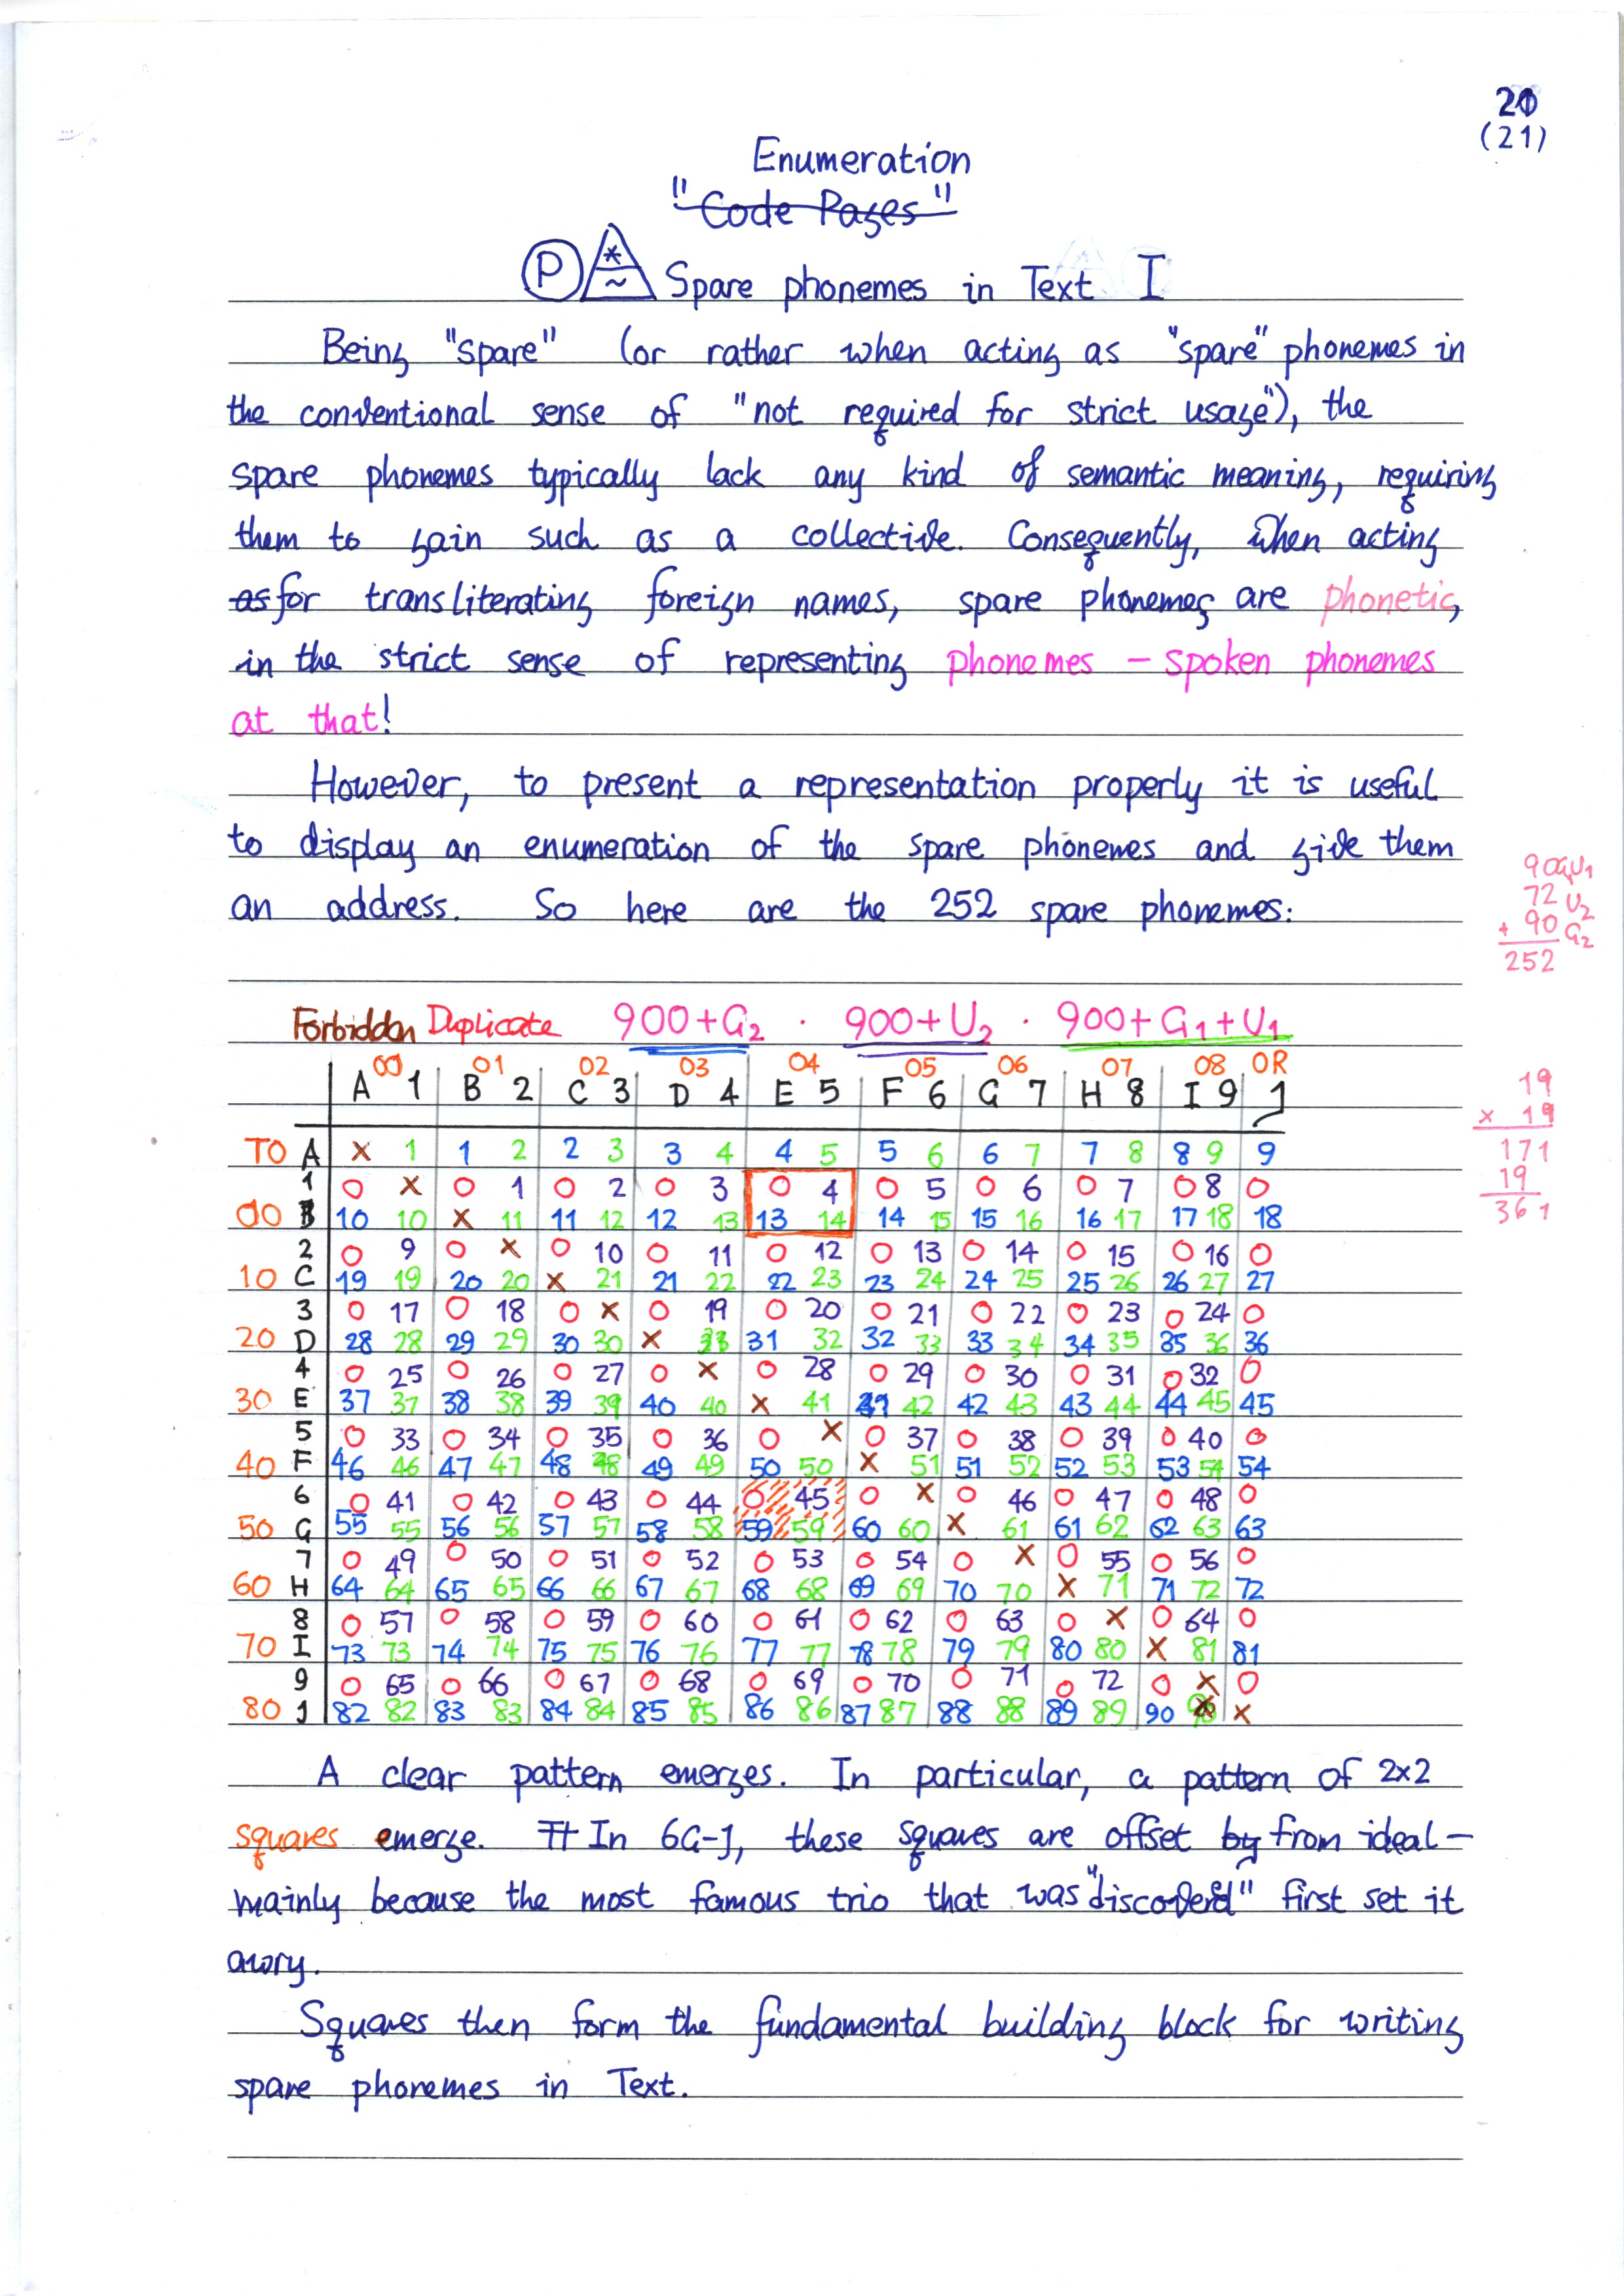 21
(21)
Enumeration
"Code Pages"
P * ~ Spare phonemes in Text I
Being "spare" (or rather when acting as "spare" phonemes in
the conventional sense of "not required for strict usage"), the
spare phonemes typically lack any kind of semantic meaning, requiring
them to gain such as a collective. Consequently, when acting
as for transliterating foreign names, spare phonemes are phonetic,
in the strict sense of representing phonemes – spoken phonemes
at that!
However, to present a representation properly it is useful
to display an enumeration of the spare phonemes and give them
an address. So here are the 252 spare phonemes:
90 G₁U₁
72 U₂
+ 90 G₂
252
Forbidden Duplicate 900+G₂ · 900+U₂ · 900+G₁+U₁
00 01 02 03 04 05 06 07 08 0R
A 1 B 2 C 3 D 4 E 5 F 6 G 7 H 8 I 9 J
19
× 19
171
19
361
T0 A x 1 1 2 2 3 3 4 4 5 5 6 6 7 7 8 8 9 9
1 0 x 0 1 0 2 0 3 0 4 0 5 0 6 0 7 0 8 0
00 B 10 10 x 11 11 12 12 13 13 14 14 15 15 16 16 17 17 18 18
2 0 9 0 x 0 10 0 11 0 12 0 13 0 14 0 15 0 16 0
10 C 19 19 20 20 x 21 21 22 22 23 23 24 24 25 25 26 26 27 27
3 0 17 0 18 0 x 0 19 0 20 0 21 0 22 0 23 0 24 0
20 D 28 28 29 29 30 30 x 31 32 32 33 33 34 34 35 35 36 36
4 0 25 0 26 0 27 0 x 0 28 0 29 0 30 0 31 0 32 0
30 E 37 37 38 38 39 39 40 40 x 41 41 42 42 43 43 44 44 45 45
5 0 33 0 34 0 35 0 36 0 x 0 37 0 38 0 39 0 40 0
40 F 46 46 47 47 48 48 49 49 50 50 x 51 51 52 52 53 53 54 54
6 0 41 0 42 0 43 0 44 0 45 0 x 0 46 0 47 0 48 0
50 G 55 55 56 56 57 57 58 58 59 59 60 60 x 61 61 62 62 63 63
7 0 49 0 50 0 51 0 52 0 53 0 54 0 x 0 55 0 56 0
60 H 64 64 65 65 66 66 67 67 68 68 69 69 70 70 x 71 71 72 72
8 0 57 0 58 0 59 0 60 0 61 0 62 0 63 0 x 0 64 0
70 I 73 73 74 74 75 75 76 76 77 77 78 78 79 79 80 80 x 81 81
9 0 65 0 66 0 67 0 68 0 69 0 70 0 71 0 72 0 x 0
80 J 82 82 83 83 84 84 85 85 86 86 87 87 88 88 89 89 90 x
A clear pattern emerges. In particular, a pattern of 2x2
squares emerge. In 6G-J, these squares are offset by from ideal –
mainly because the most famous trio that was "discovered" first set it
awry.
Squares then form the fundamental building block for writing
spare phonemes in Text.